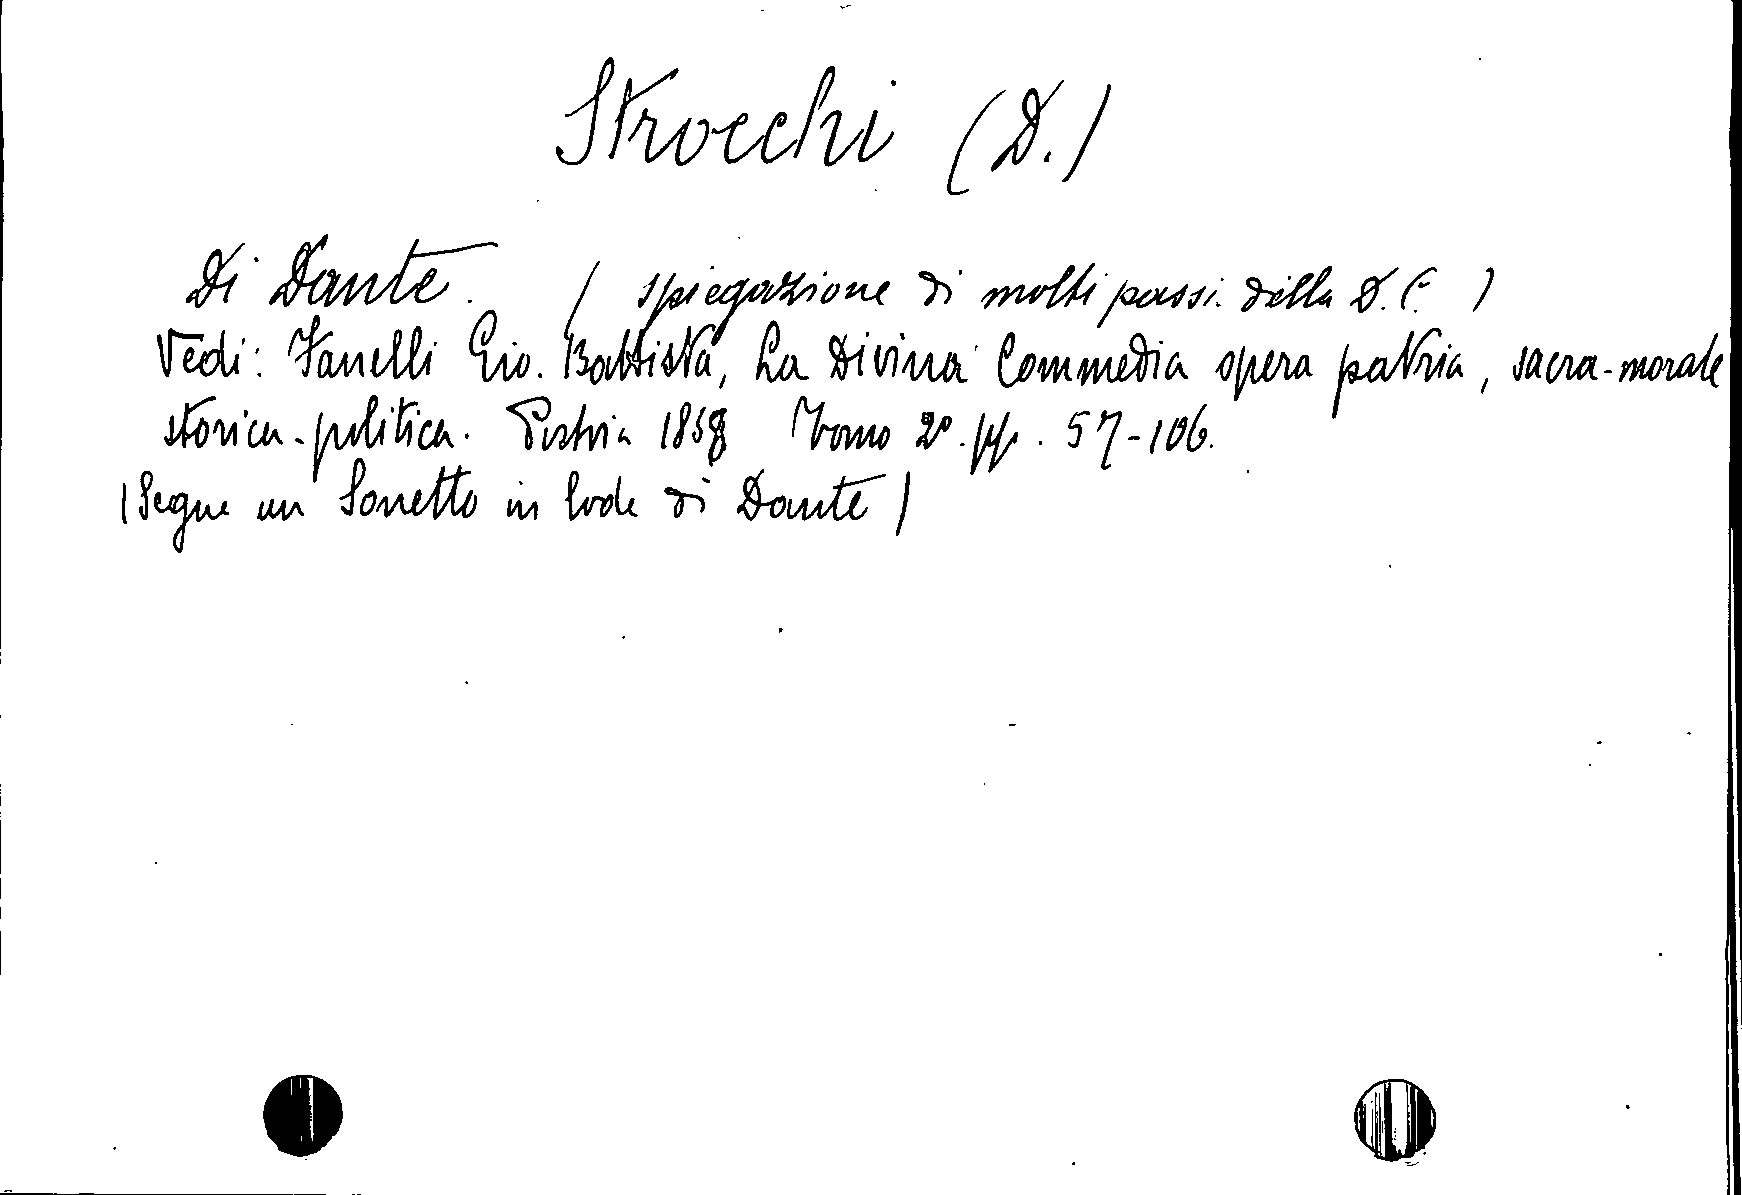 Strocchi (D.)
Di Dante. (spiegazione di molti passi della D. C.)
Vedi: Fanelli Gio. Battista, La Divina Commedia opera patria, sacra-morale
storica-politica. Pistoia 1838 Tomo 2º. pp. 57-106.
(Segue un Sonetto in lode di Dante)